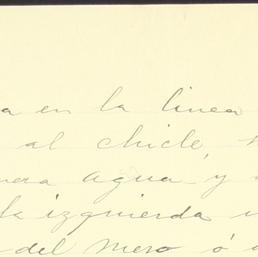 a en la linea
al chicle,
nera agua y
la izquierda
del mero ó a